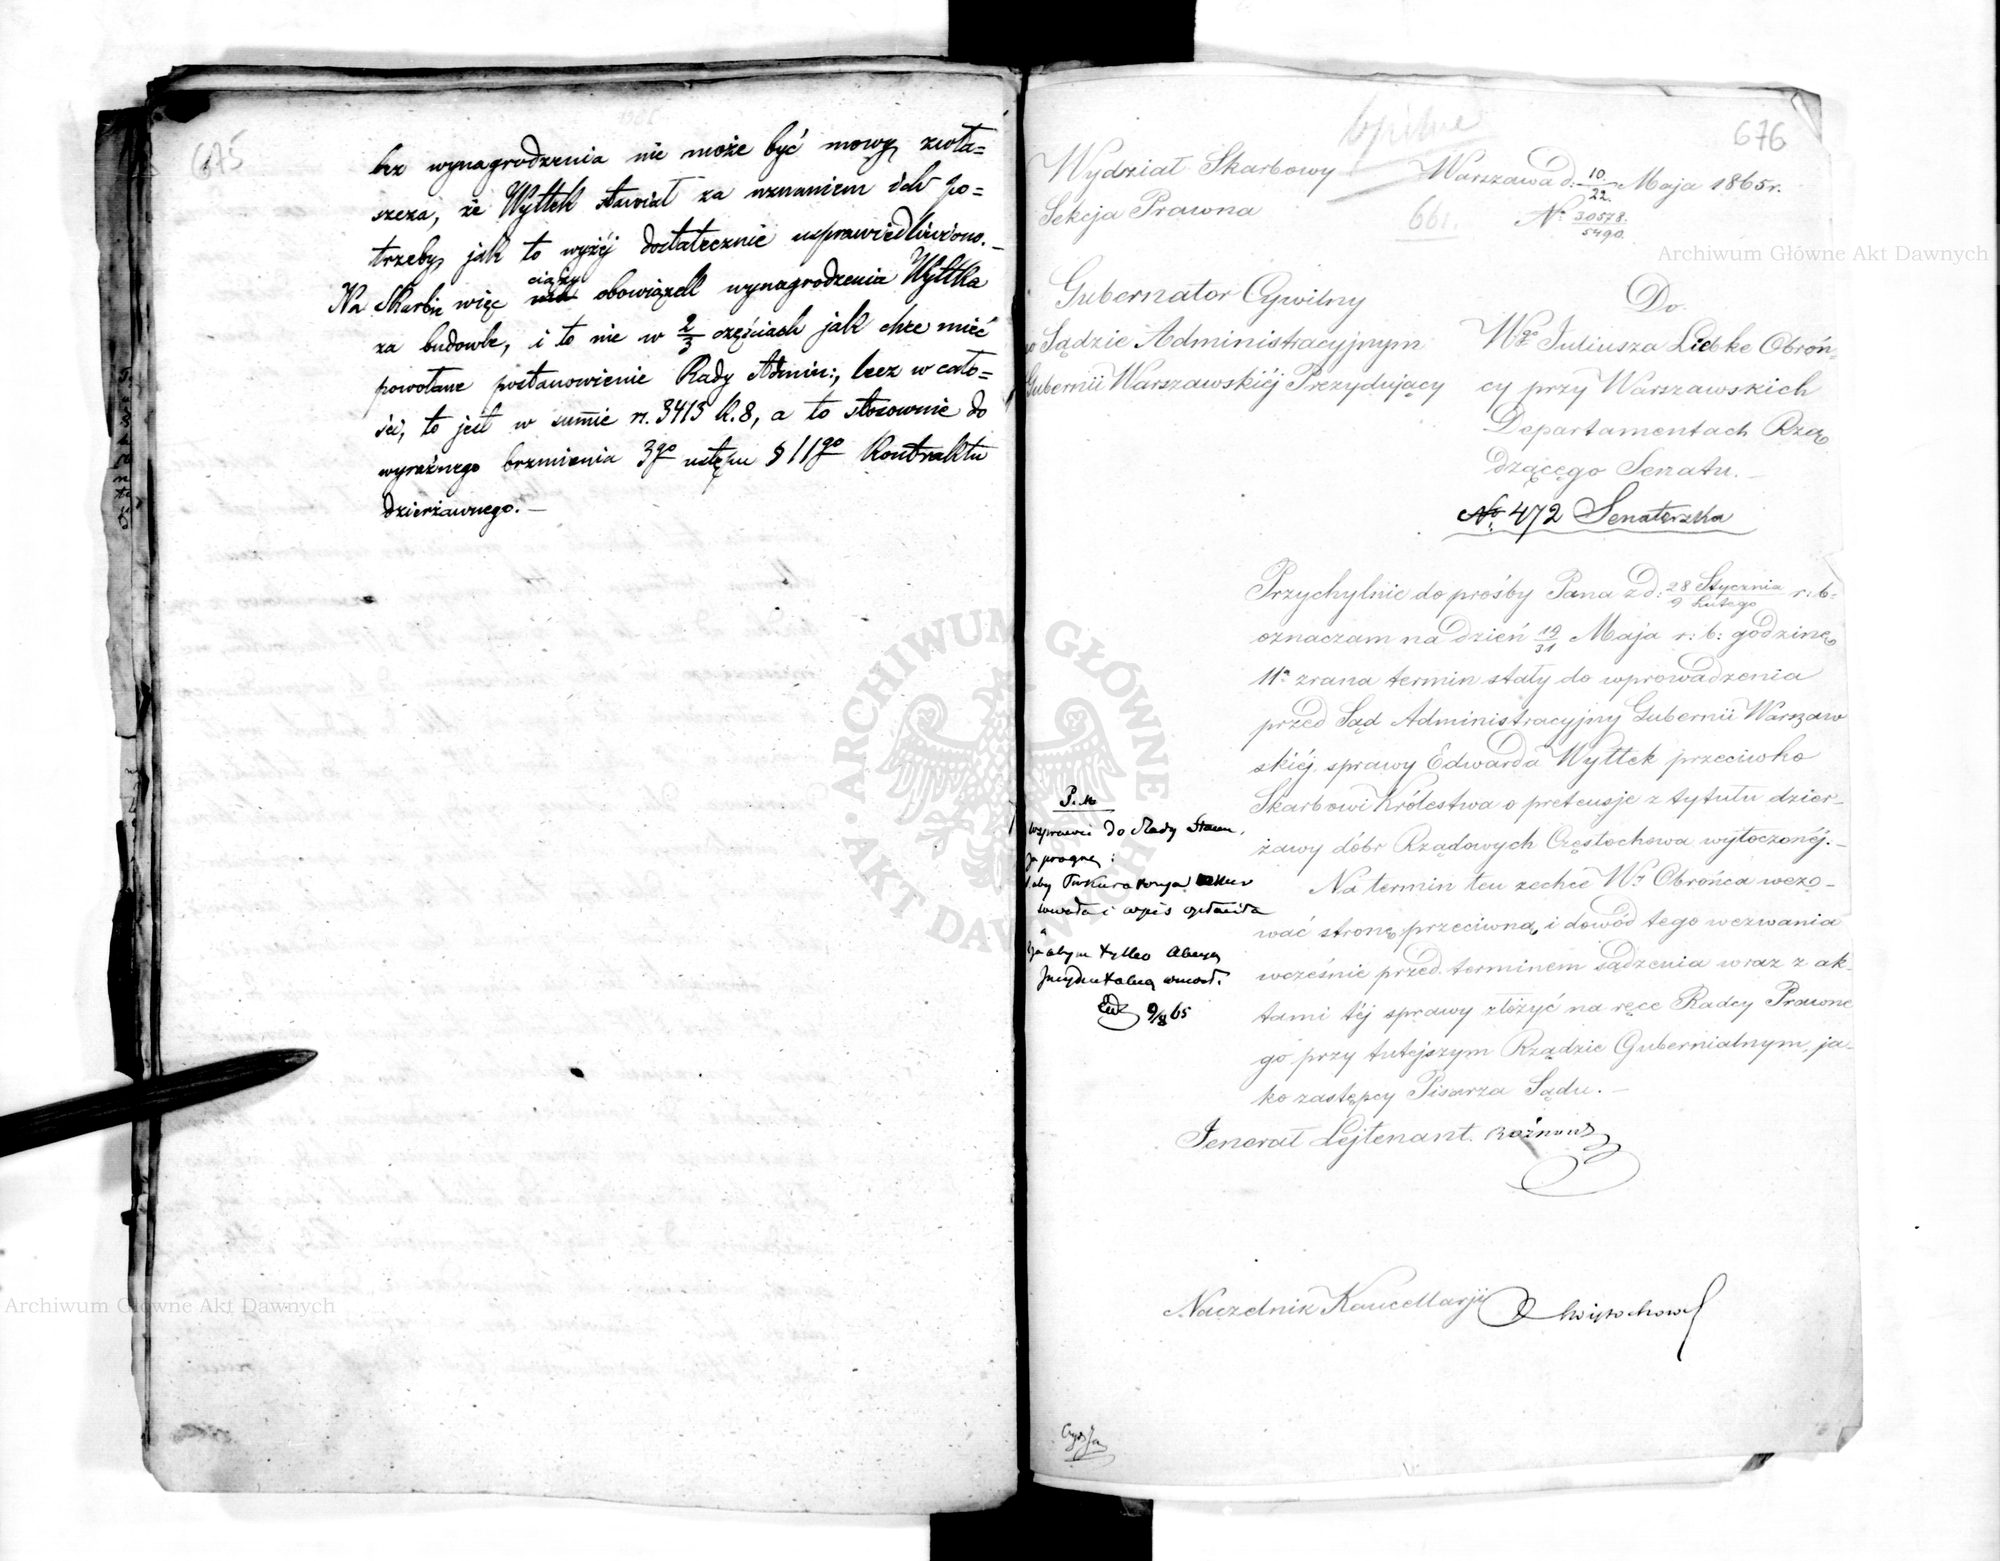 675
bez wynagrodzenia nie może być mowy, zwła=
szcza, że Wyttek stawiał za uznaniem ich po=
trzeby, jak to wyżéj dostatecznie usprawiedliwiono. —
ciąży
Na Skarbie więc obowiązek wynagrodzenia Wyttka
za budowle, i to nie w 2/3 częściach jak chce mieć
powołane postanowienie Rady Admin:, lecz w cało=
ści, to jest w sumie rs. 3413 k. 8, a to stosownie do
wyraźnego brzmienia 3go ustępu § 11go Kontraktu
dzierżawnego. —
pilne
676
Wydział Skarbowy
Sekcja Prawna
Warszawa d. 10/22 Maja 1865 r.
661.
No 30578./5490.
Gubernator Cywilny
w Sądzie Administracyjnym
Gubernii Warszawskiéj Prezydujący
Do
Wgo Juliusza Liebke Obroń=
cy przy Warszawskich
Departamentach Rzą
dzącego Senatu. —
No. 472 Senatorska
Przychylnie do prośby Pana z d: 28 Stycznia/9 Lutego r: b:
oznaczam na dzień 19/31 Maja r: b: godzinę
11a zrana termin stały do wprowadzenia
przed Sąd Administracyjny Gubernii Warszaw
skiéj sprawy Edwarda Wyttek przeciwko
Skarbowi Królestwa o pretensje z tytułu dzier-
żawy dóbr Rządowych Częstochowa wytoczonéj. —
Na termin ten zechce Wy Obrońca wezo-
wać stronę przeciwną, i dowód tego wezwania
wcześnie przed terminem sądzenia wraz z ak-
tami téj sprawy złożyć na ręce Radcy Prawne
go przy tutejszym Rządzie Gubernialnym, ja-
ko zastępcy Pisarza Sądu. —
P. M.
do Rady Stanu,
ja pragnę:
aby Prokuratorya
i wpis opłaciła
a
abym tylko
9/XI 65
Jenerał Lejtenant. Rożnow
Naczelnik Kancellaryi Świętochowski
Archiwum Główne Akt Dawnych
Archiwum Główne Akt Dawnych
ARCHIWUM GŁÓWNE AKT DAWNYCH